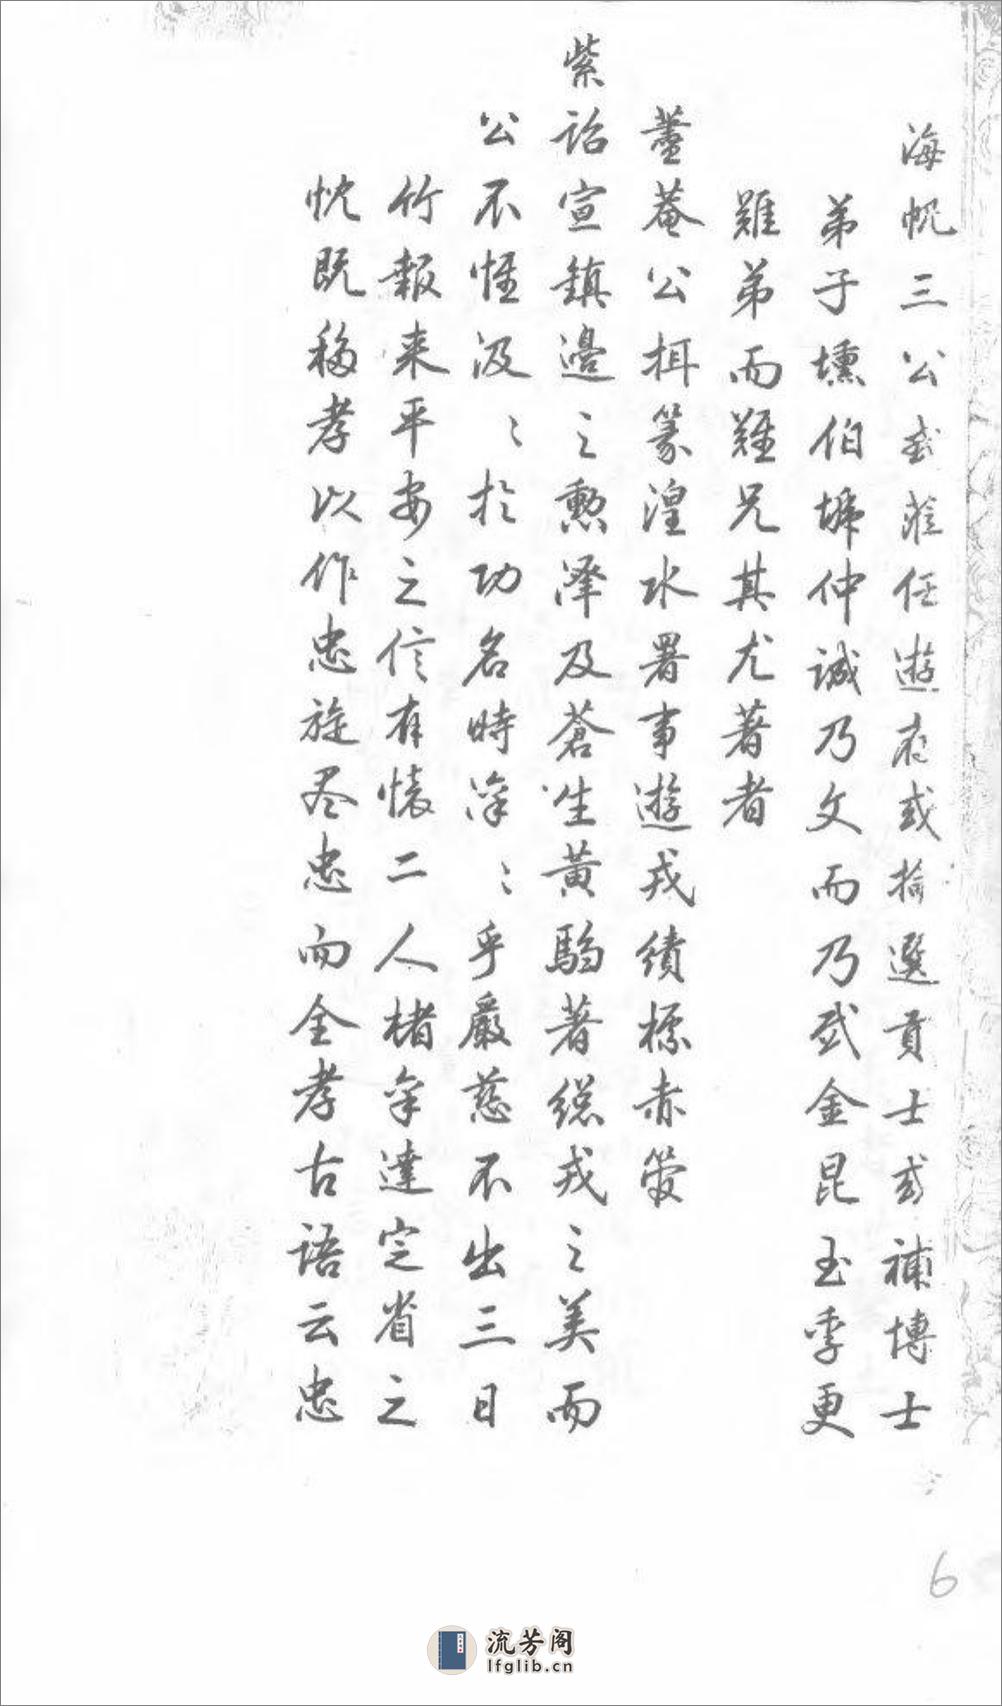 海帆三公或蒞任遊府或擒選貢士或補博士
弟子壎伯箎仲誠乃文而乃武金昆玉季更
難弟而難兄其尤著者
藎菴公揖篆湟水署事遊戎績標赤管
紫詔宣鎮邊之勲澤及蒼生黃騊著總戎之美而
公不惟汲〻於功名時深〻乎嚴慈不出三日
竹報来平安之信有懷二人楮穿達定省之
忱既移孝以作忠旋尽忠而全孝古語云忠
6
流芳阁
lfglib.cn